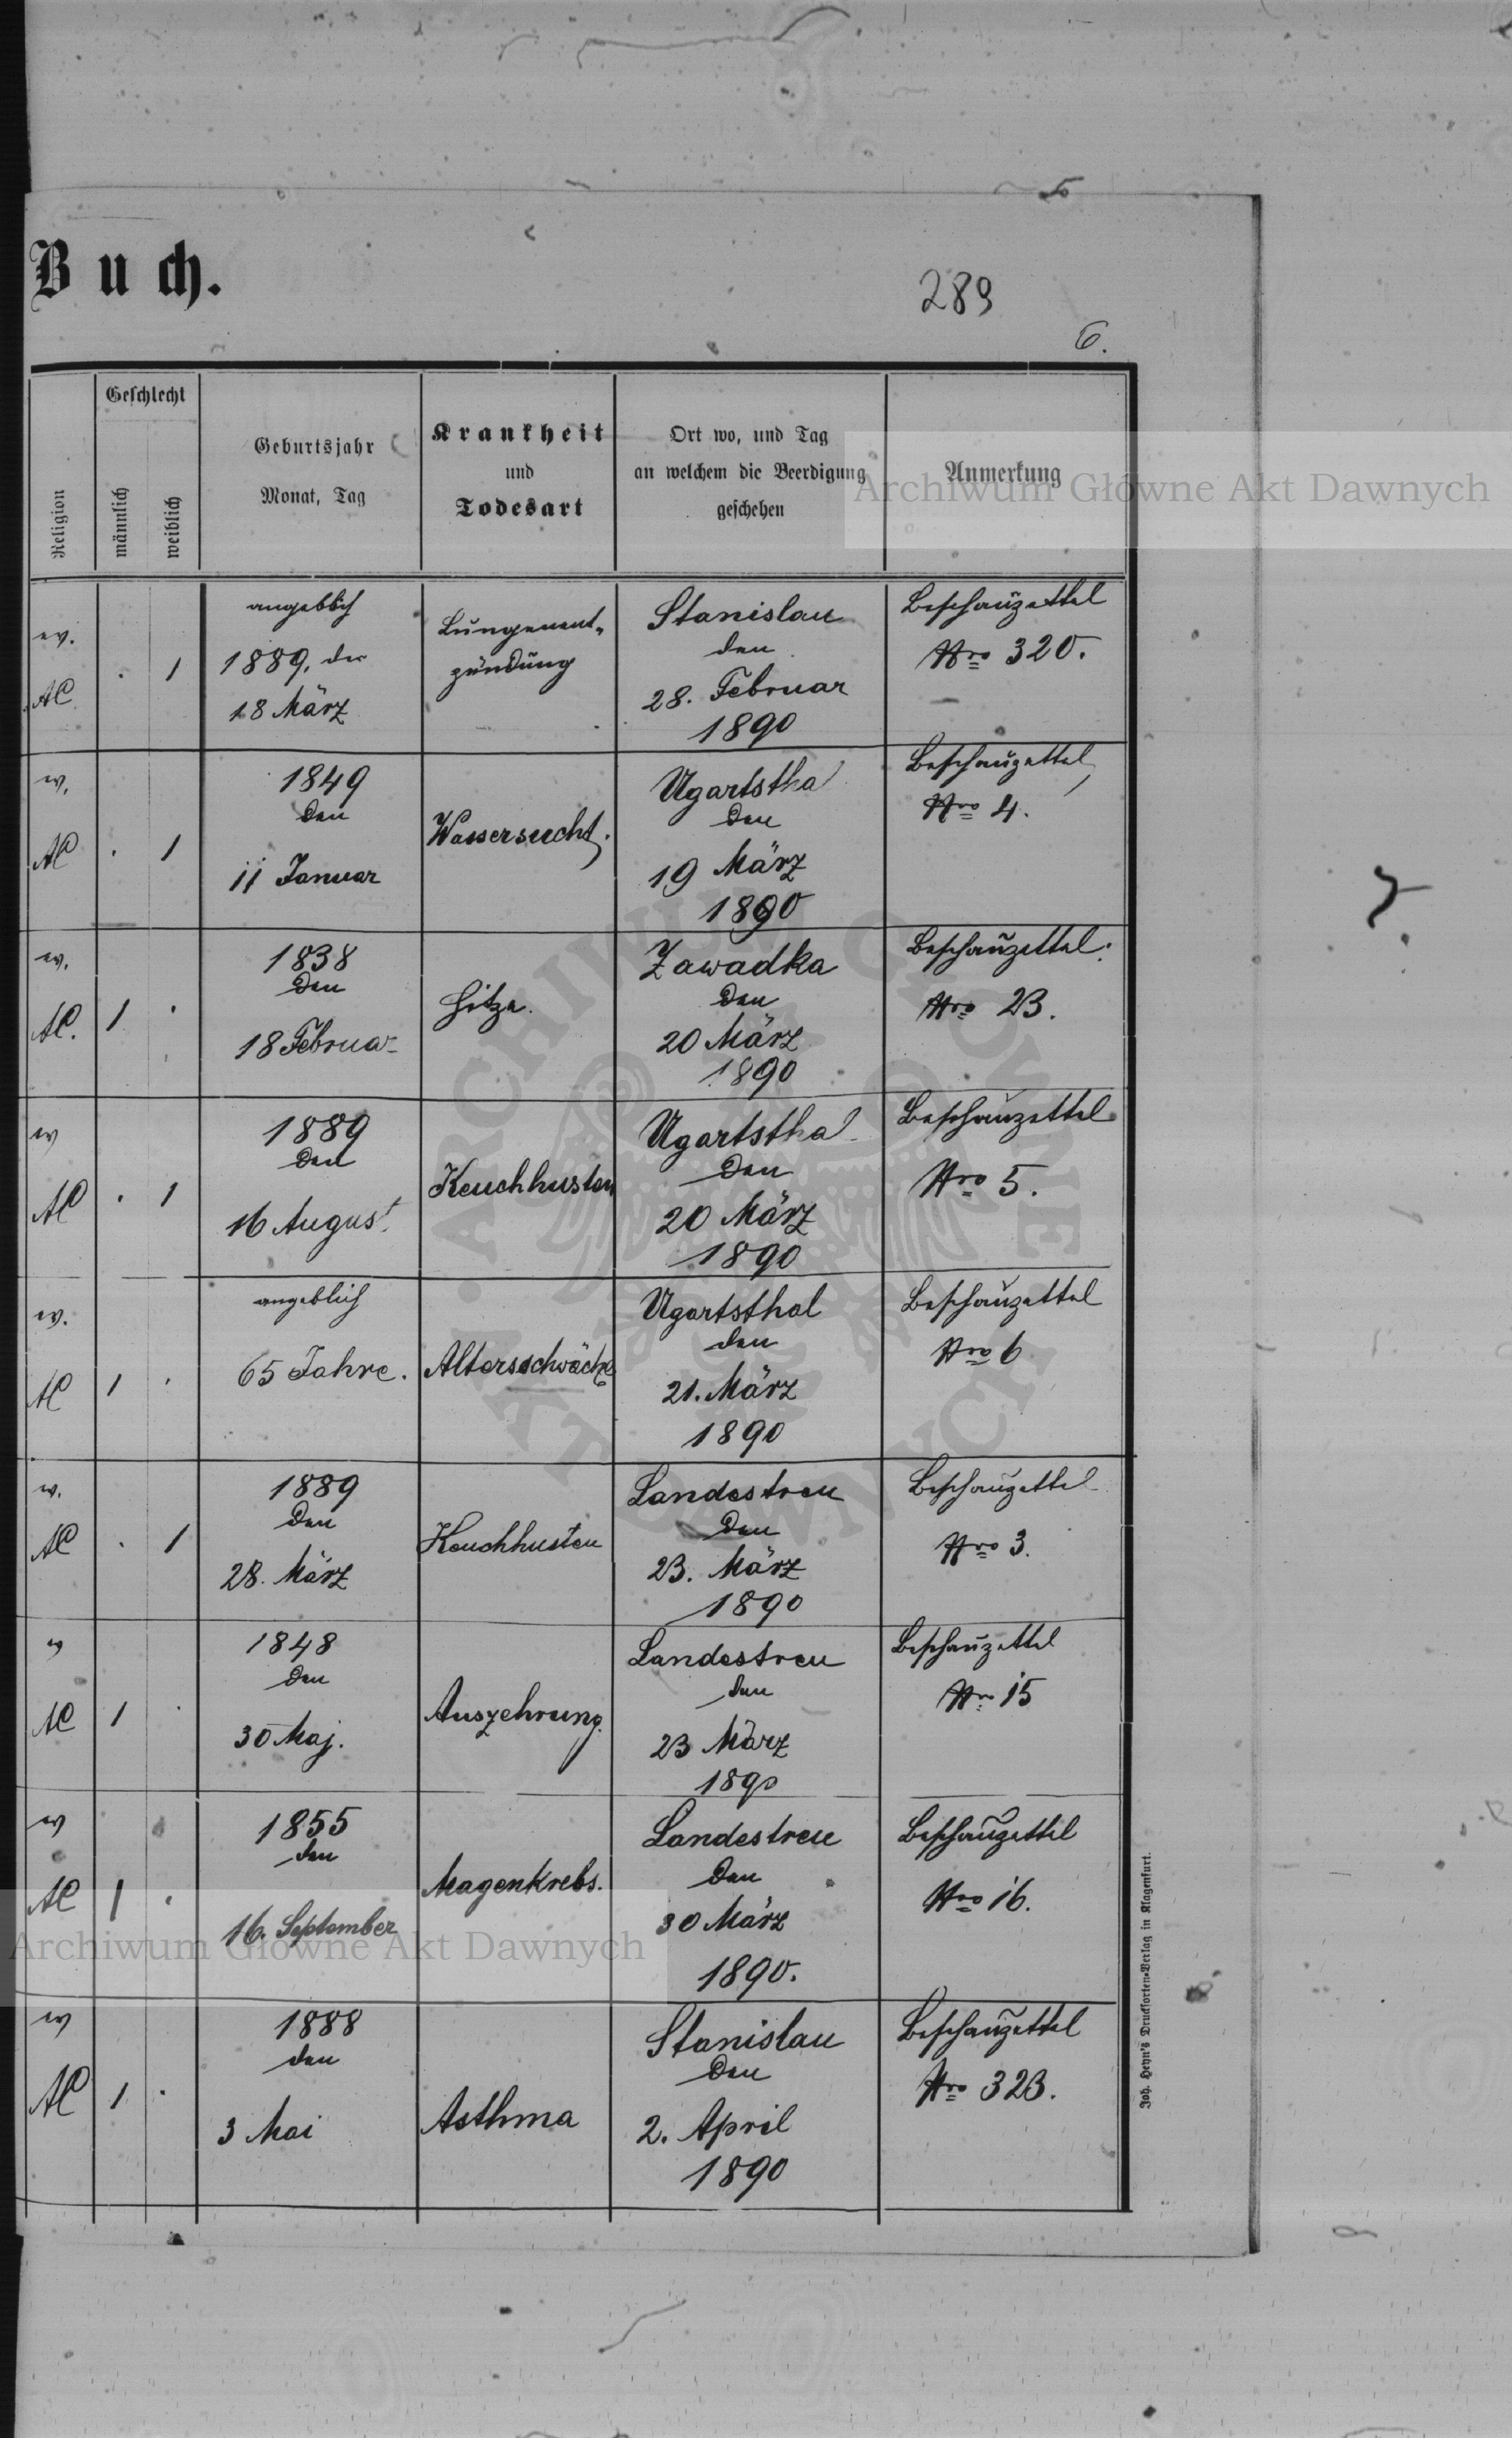 Buch.
289
6.
Religion
Geschlecht
männlich
weiblich
Geburtsjahr
Monat, Tag
Krankheit
und
Todesart
Ort wo, und Tag
an welchem die Beerdigung
geschehen
Anmerkung
Archiwum Główne Akt Dawnych
ev.
AC
.
1
angeblich
1889, den
18 März
Lungenent-
zündung
Stanislau
den
28. Februar
1890
Beschauzettel
Nro 320.
ev.
AC
.
1
1849
den
11 Januar
Wassersucht.
Ugartsthal
den
19 März
1890
Beschauzettel
Nro 4.
ev.
AC.
1
.
1838
den
18 Februar
Hitze.
Zawadka
den
20 März
1890
Beschauzettel.
Nro 23.
ev
AC
.
1
1889
den
16 August.
Keuchhusten
Ugartsthal
den
20 März
1890
Beschauzettel
Nro 5.
ev.
AC
1
.
angeblich
65 Jahre.
Altersschwäche
Ugartsthal
den
21. März
1890
Beschauzettel
Nro 6
ev.
AC
.
1
1889
den
28. März
Keuchhusten
Landestreu
den
23. März
1890
Beschauzettel
Nro 3.
ev
AC
1
.
1848
den
30 Maj.
Auszehrung.
Landestreu
den
23 März
1890
Beschauzettel
Nro 15
ev
AC
1
.
1855
den
16. September
Magenkrebs.
Landestreu
den
30 März
1890.
Beschauzettel
Nro 16.
Archiwum Główne Akt Dawnych
ev
AC
1
.
1888
den
3 Mai
Asthma
Stanislau
den
2. April
1890
Beschauzettel
Nro 323.
Joh. Heyn's Drucksorten-Verlag in Klagenfurt.
ARCHIWUM GŁÓWNE AKT DAWNYCH